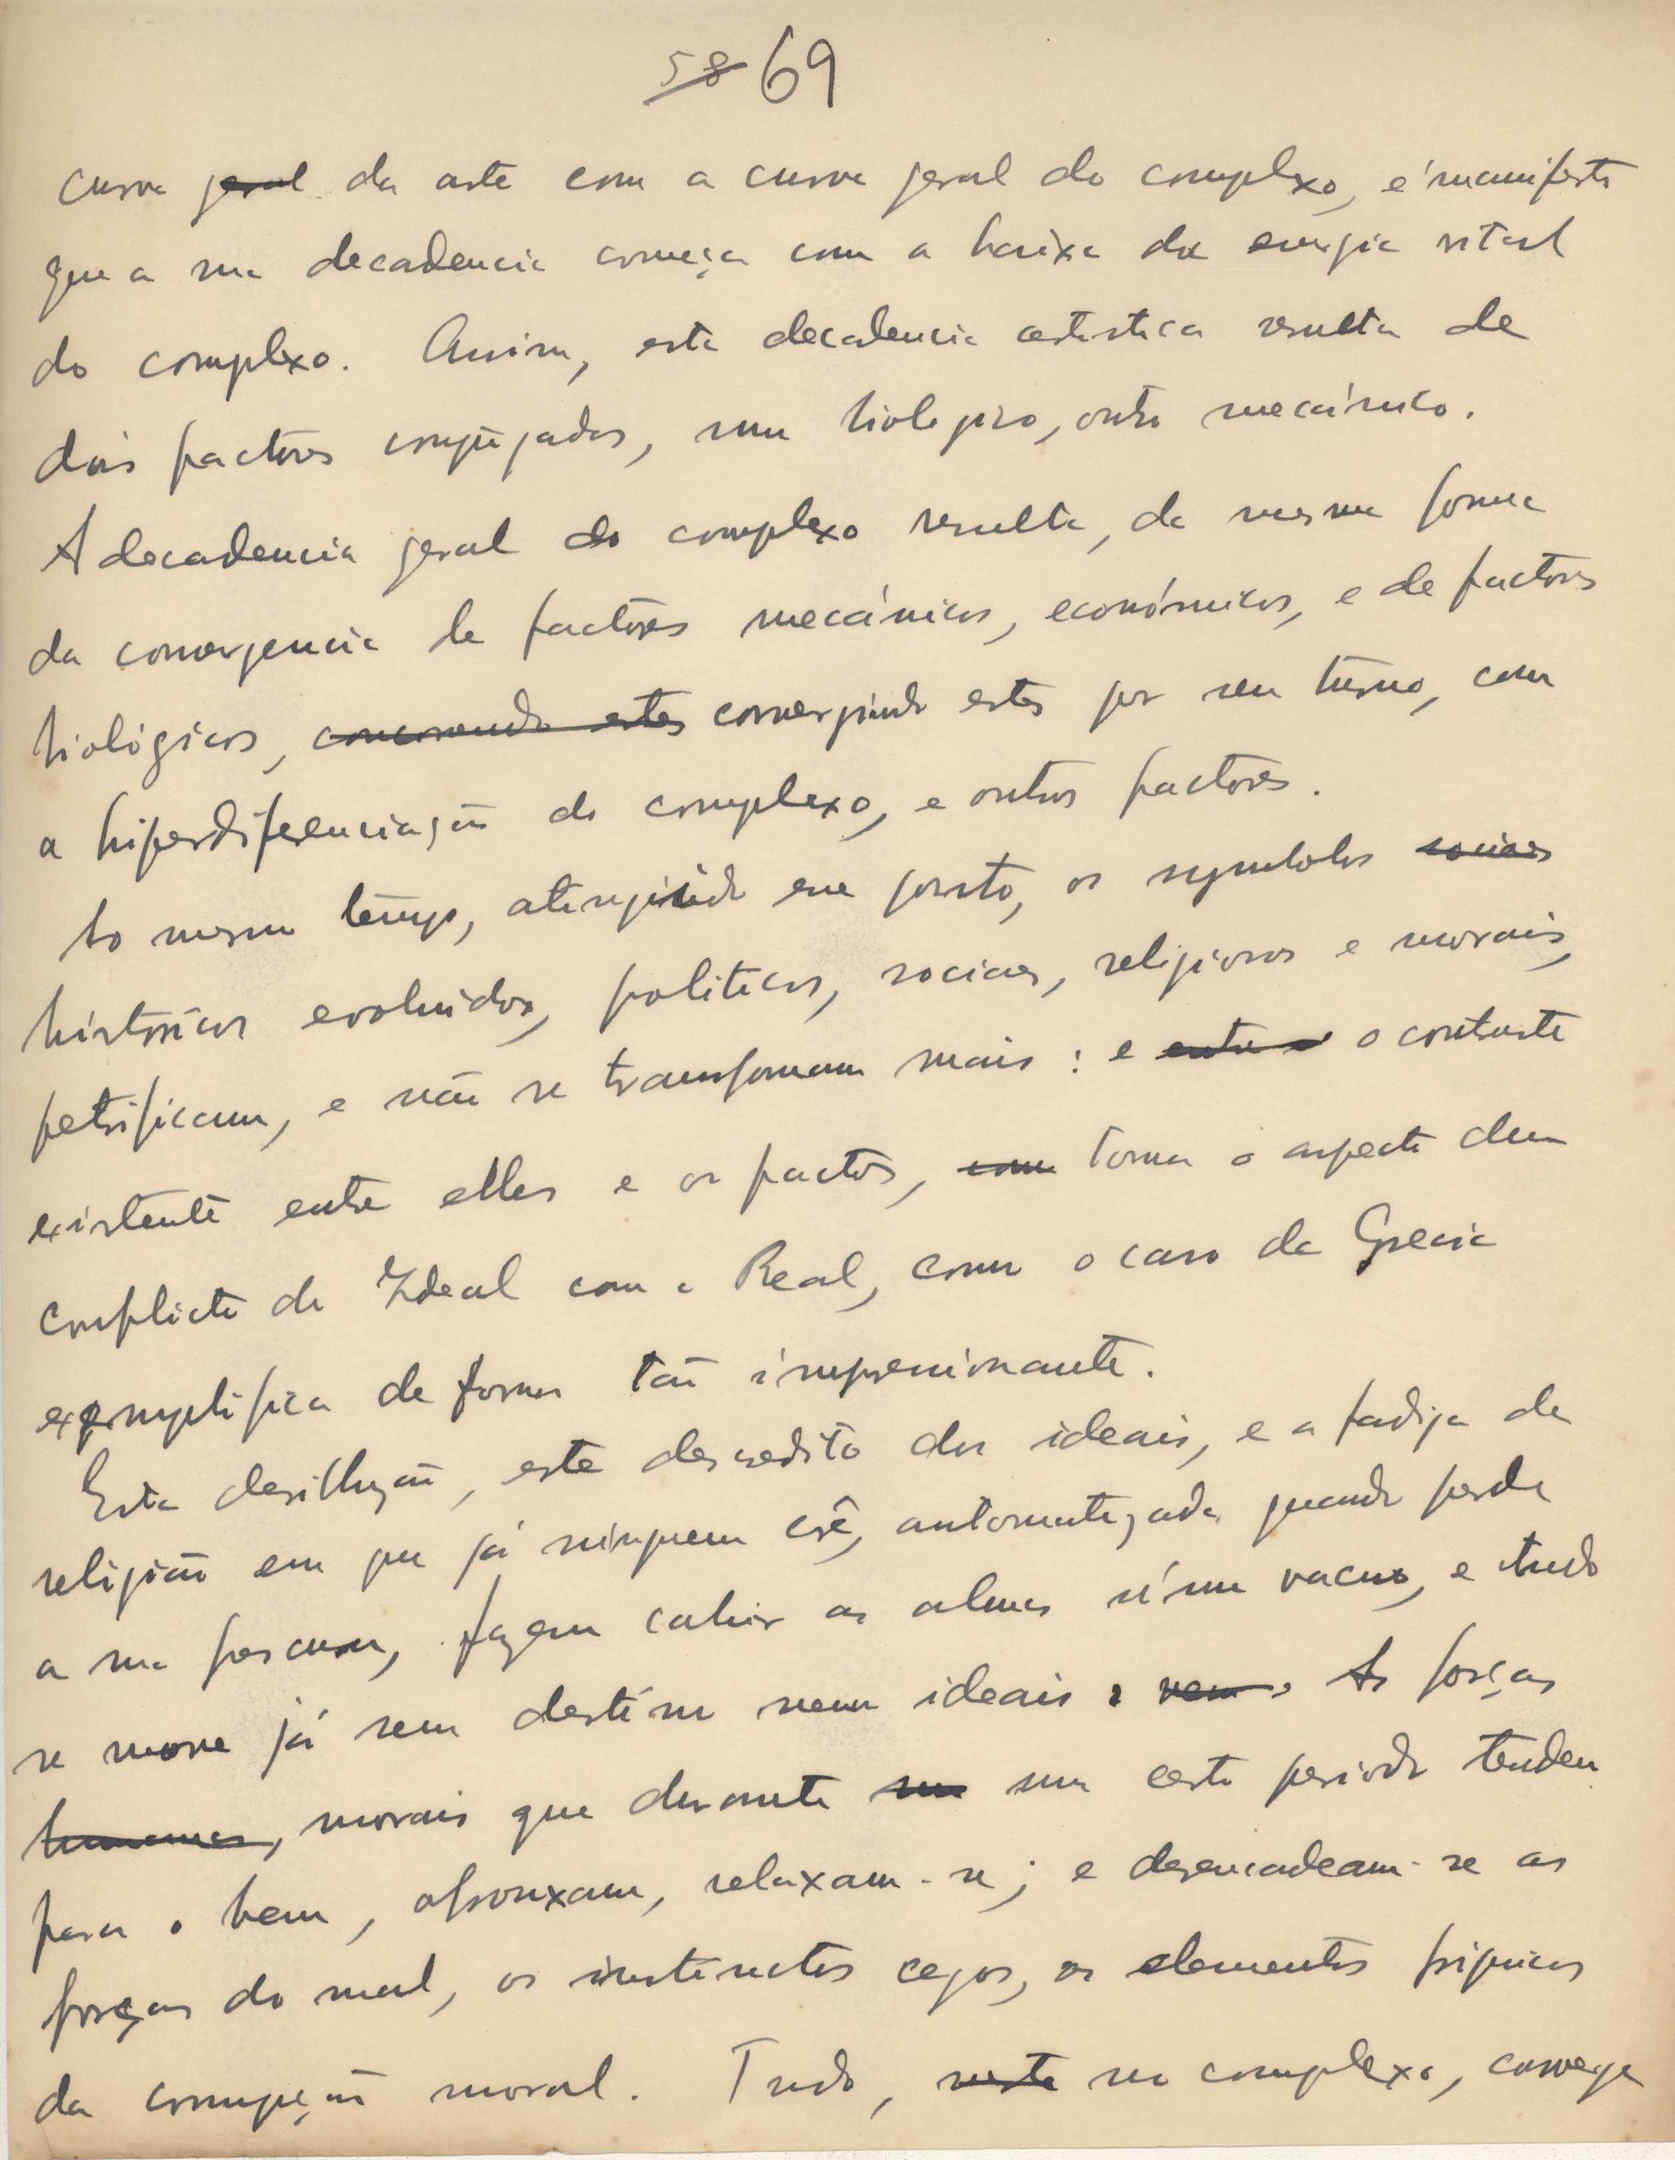 58 69
curva geral da arte com a curva geral do complexo, é manifesto
que a sua decadencia começa com a baixa da energia vital
do complexo. Assim, esta decadencia artistica resulta de
dois factores conjugados, um biologico, outro mecánico.
A decadencia geral do complexo resulta, da mesma forma
da convergencia de factores mecánicos, económicos, e de factores
biológicos, concorrendo estes convergindo estes por seu turno, com
a hiperdiferenciação do complexo, e outros factores.
Ao mesmo tempo, atingindo esse ponto, os symbolos sociaes
históricos evoluidos, politicos, sociaes, religiosos e morais,
petrificam, e não se transformam mais: e entre o o contraste
existente entre elles e os factos, com toma o aspecto dum
conflicto do Ideal com o Real, como o caso da Grecia
exemplifica de forma tão impressionante.
Esta desillusão, este descredito dos ideais, e a fadiga da
religião em que já ninguem crê, automatizada quando perde
a sua, fazem cahir as almas n'um vacuo, e tudo
se move já sem destino nem ideais nem. As forças
humanas, morais que durante um um certo periodo tendem
para o bem, afrouxam, relaxam-se; e desencadeam-se as
forças do mal, os instinctos cegos, os elementos
da corrupção moral. Tudo, neste no complexo, converge